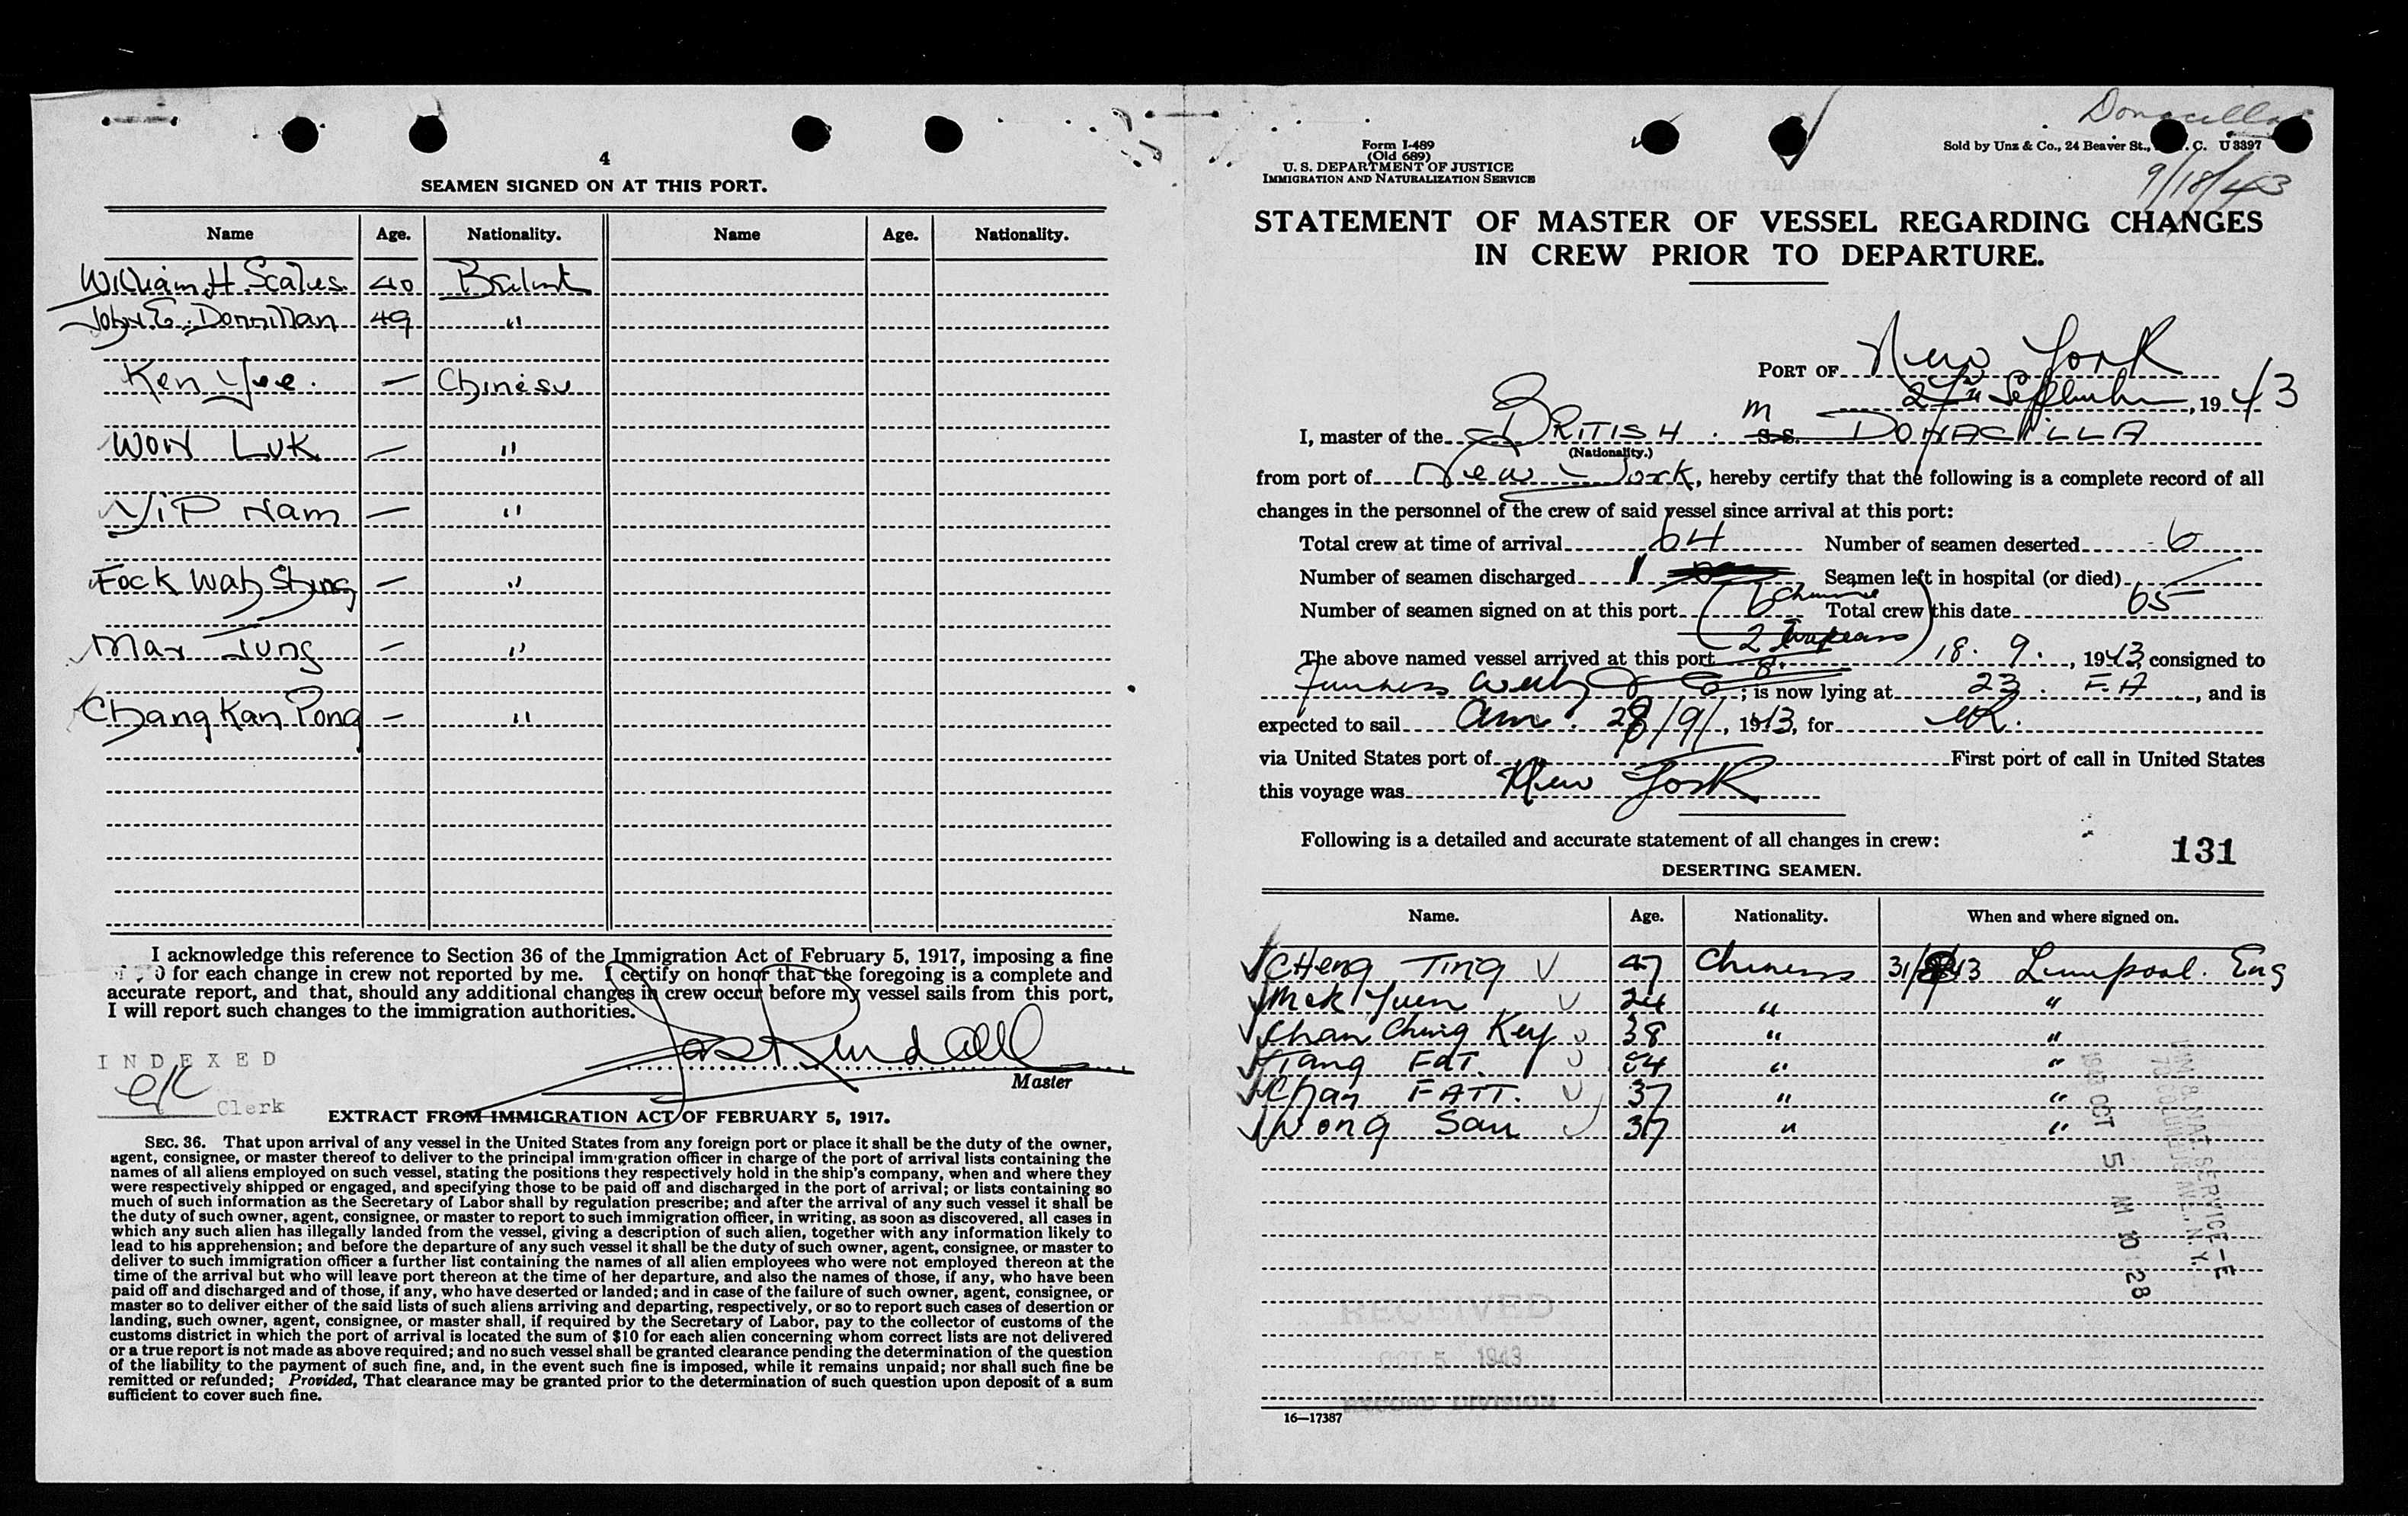 4
SEAMEN SIGNED ON AT THIS PORT.
Name Age. Nationality. Name Age. Nationality.
William H Scales 40 British
John E. Donnillan 49 "
Ken Yee. — Chinese
WON LUK — "
YIP Nam — "
Fock Wah Shing — "
Mar Jung — "
Chang Kan Pong — "
I acknowledge this reference to Section 36 of the Immigration Act of February 5, 1917, imposing a fine
0 for each change in crew not reported by me. I certify on honor that the foregoing is a complete and
accurate report, and that, should any additional changes in crew occur before my vessel sails from this port,
I will report such changes to the immigration authorities.
Jas Rendall
Master
INDEXED
Clerk
EXTRACT FROM IMMIGRATION ACT OF FEBRUARY 5, 1917.
SEC. 36. That upon arrival of any vessel in the United States from any foreign port or place it shall be the duty of the owner,
agent, consignee, or master thereof to deliver to the principal immigration officer in charge of the port of arrival lists containing the
names of all aliens employed on such vessel, stating the positions they respectively hold in the ship's company, when and where they
were respectively shipped or engaged, and specifying those to be paid off and discharged in the port of arrival; or lists containing so
much of such information as the Secretary of Labor shall by regulation prescribe; and after the arrival of any such vessel it shall be
the duty of such owner, agent, consignee, or master to report to such immigration officer, in writing, as soon as discovered, all cases in
which any such alien has illegally landed from the vessel, giving a description of such alien, together with any information likely to
lead to his apprehension; and before the departure of any such vessel it shall be the duty of such owner, agent, consignee, or master to
deliver to such immigration officer a further list containing the names of all alien employees who were not employed thereon at the
time of the arrival but who will leave port thereon at the time of her departure, and also the names of those, if any, who have been
paid off and discharged and of those, if any, who have deserted or landed; and in case of the failure of such owner, agent, consignee, or
master so to deliver either of the said lists of such aliens arriving and departing, respectively, or so to report such cases of desertion or
landing, such owner, agent, consignee, or master shall, if required by the Secretary of Labor, pay to the collector of customs of the
customs district in which the port of arrival is located the sum of $10 for each alien concerning whom correct lists are not delivered
or a true report is not made as above required; and no such vessel shall be granted clearance pending the determination of the question
of the liability to the payment of such fine, and, in the event such fine is imposed, while it remains unpaid; nor shall such fine be
remitted or refunded; Provided, That clearance may be granted prior to the determination of such question upon deposit of a sum
sufficient to cover such fine.
Donacilla
Form I-489
(Old 689)
U. S. DEPARTMENT OF JUSTICE
IMMIGRATION AND NATURALIZATION SERVICE
Sold by Unz & Co., 24 Beaver St., C. U 3397
9/18/43
STATEMENT OF MASTER OF VESSEL REGARDING CHANGES
IN CREW PRIOR TO DEPARTURE.
PORT OF New York
27th September, 1943
I, master of the BRITISH m s.s. DONACILLA
(Nationality.)
from port of New York, hereby certify that the following is a complete record of all
changes in the personnel of the crew of said vessel since arrival at this port:
Total crew at time of arrival 64 Number of seamen deserted 6
Number of seamen discharged 1 Seamen left in hospital (or died) —
Number of seamen signed on at this port (6 Chinese Total crew this date 65
2 Europeans)
The above named vessel arrived at this port 8. 18. 9., 1943, consigned to
Furness Withy & Co; is now lying at 23. F.A, and is
expected to sail am. 28/9/, 1943, for UK.
via United States port of First port of call in United States
this voyage was New York
Following is a detailed and accurate statement of all changes in crew:
131
DESERTING SEAMEN.
Name. Age. Nationality. When and where signed on.
CHeng Ting 47 Chinese 31/8/43 Liverpool. Eng
Mok Yuen 24 " "
Chan Ching Key 38 " "
Tang Fat. 54 " "
Chan FATT. 37 " "
Wong Sau 37 " "
IMM. & NAT. SERVICE-E
70 COLUMBUS AVE., N.Y.
1943 OCT 5 M 10 28
RECEIVED
OCT 5 1943
RECORD DIVISION
16—17387